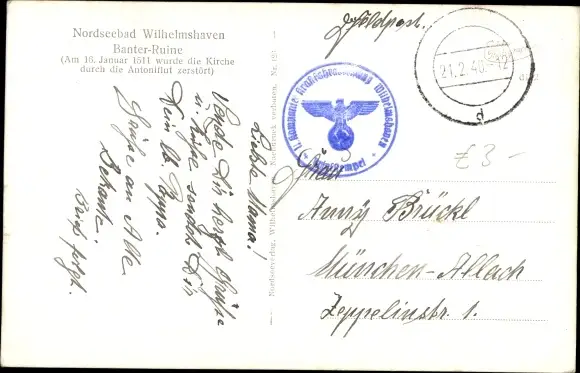 Nordseebad Wilhelmshaven
Banter-Ruine
(Am 16. Januar 1511 wurde die Kirche
durch die Antoniflut zerstört)
Feldpost.
21.2.40.-12
d
Wilhelmshaven
£3-
Frau
Anny Brückl
München-Allach
Zeppelinstr. 1.
Liebe Mama!
Sende Dir herzl. Grüße
u. Küße sendet Dir
Dein lb. Pepps.
Grüße an Alle
Bekannte.
Brief folgt.